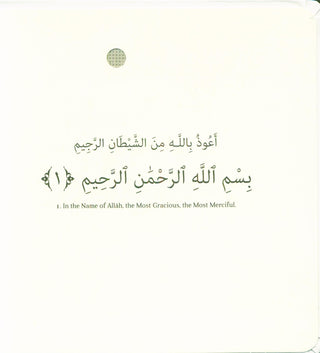 أَعُوذُ بِاللَّـهِ مِنَ الشَّيْطَانِ الرَّجِيمِ
بِسْمِ ٱللَّهِ ٱلرَّحْمَٰنِ ٱلرَّحِيمِ ﴿١﴾
1. In the Name of Allāh, the Most Gracious, the Most Merciful.